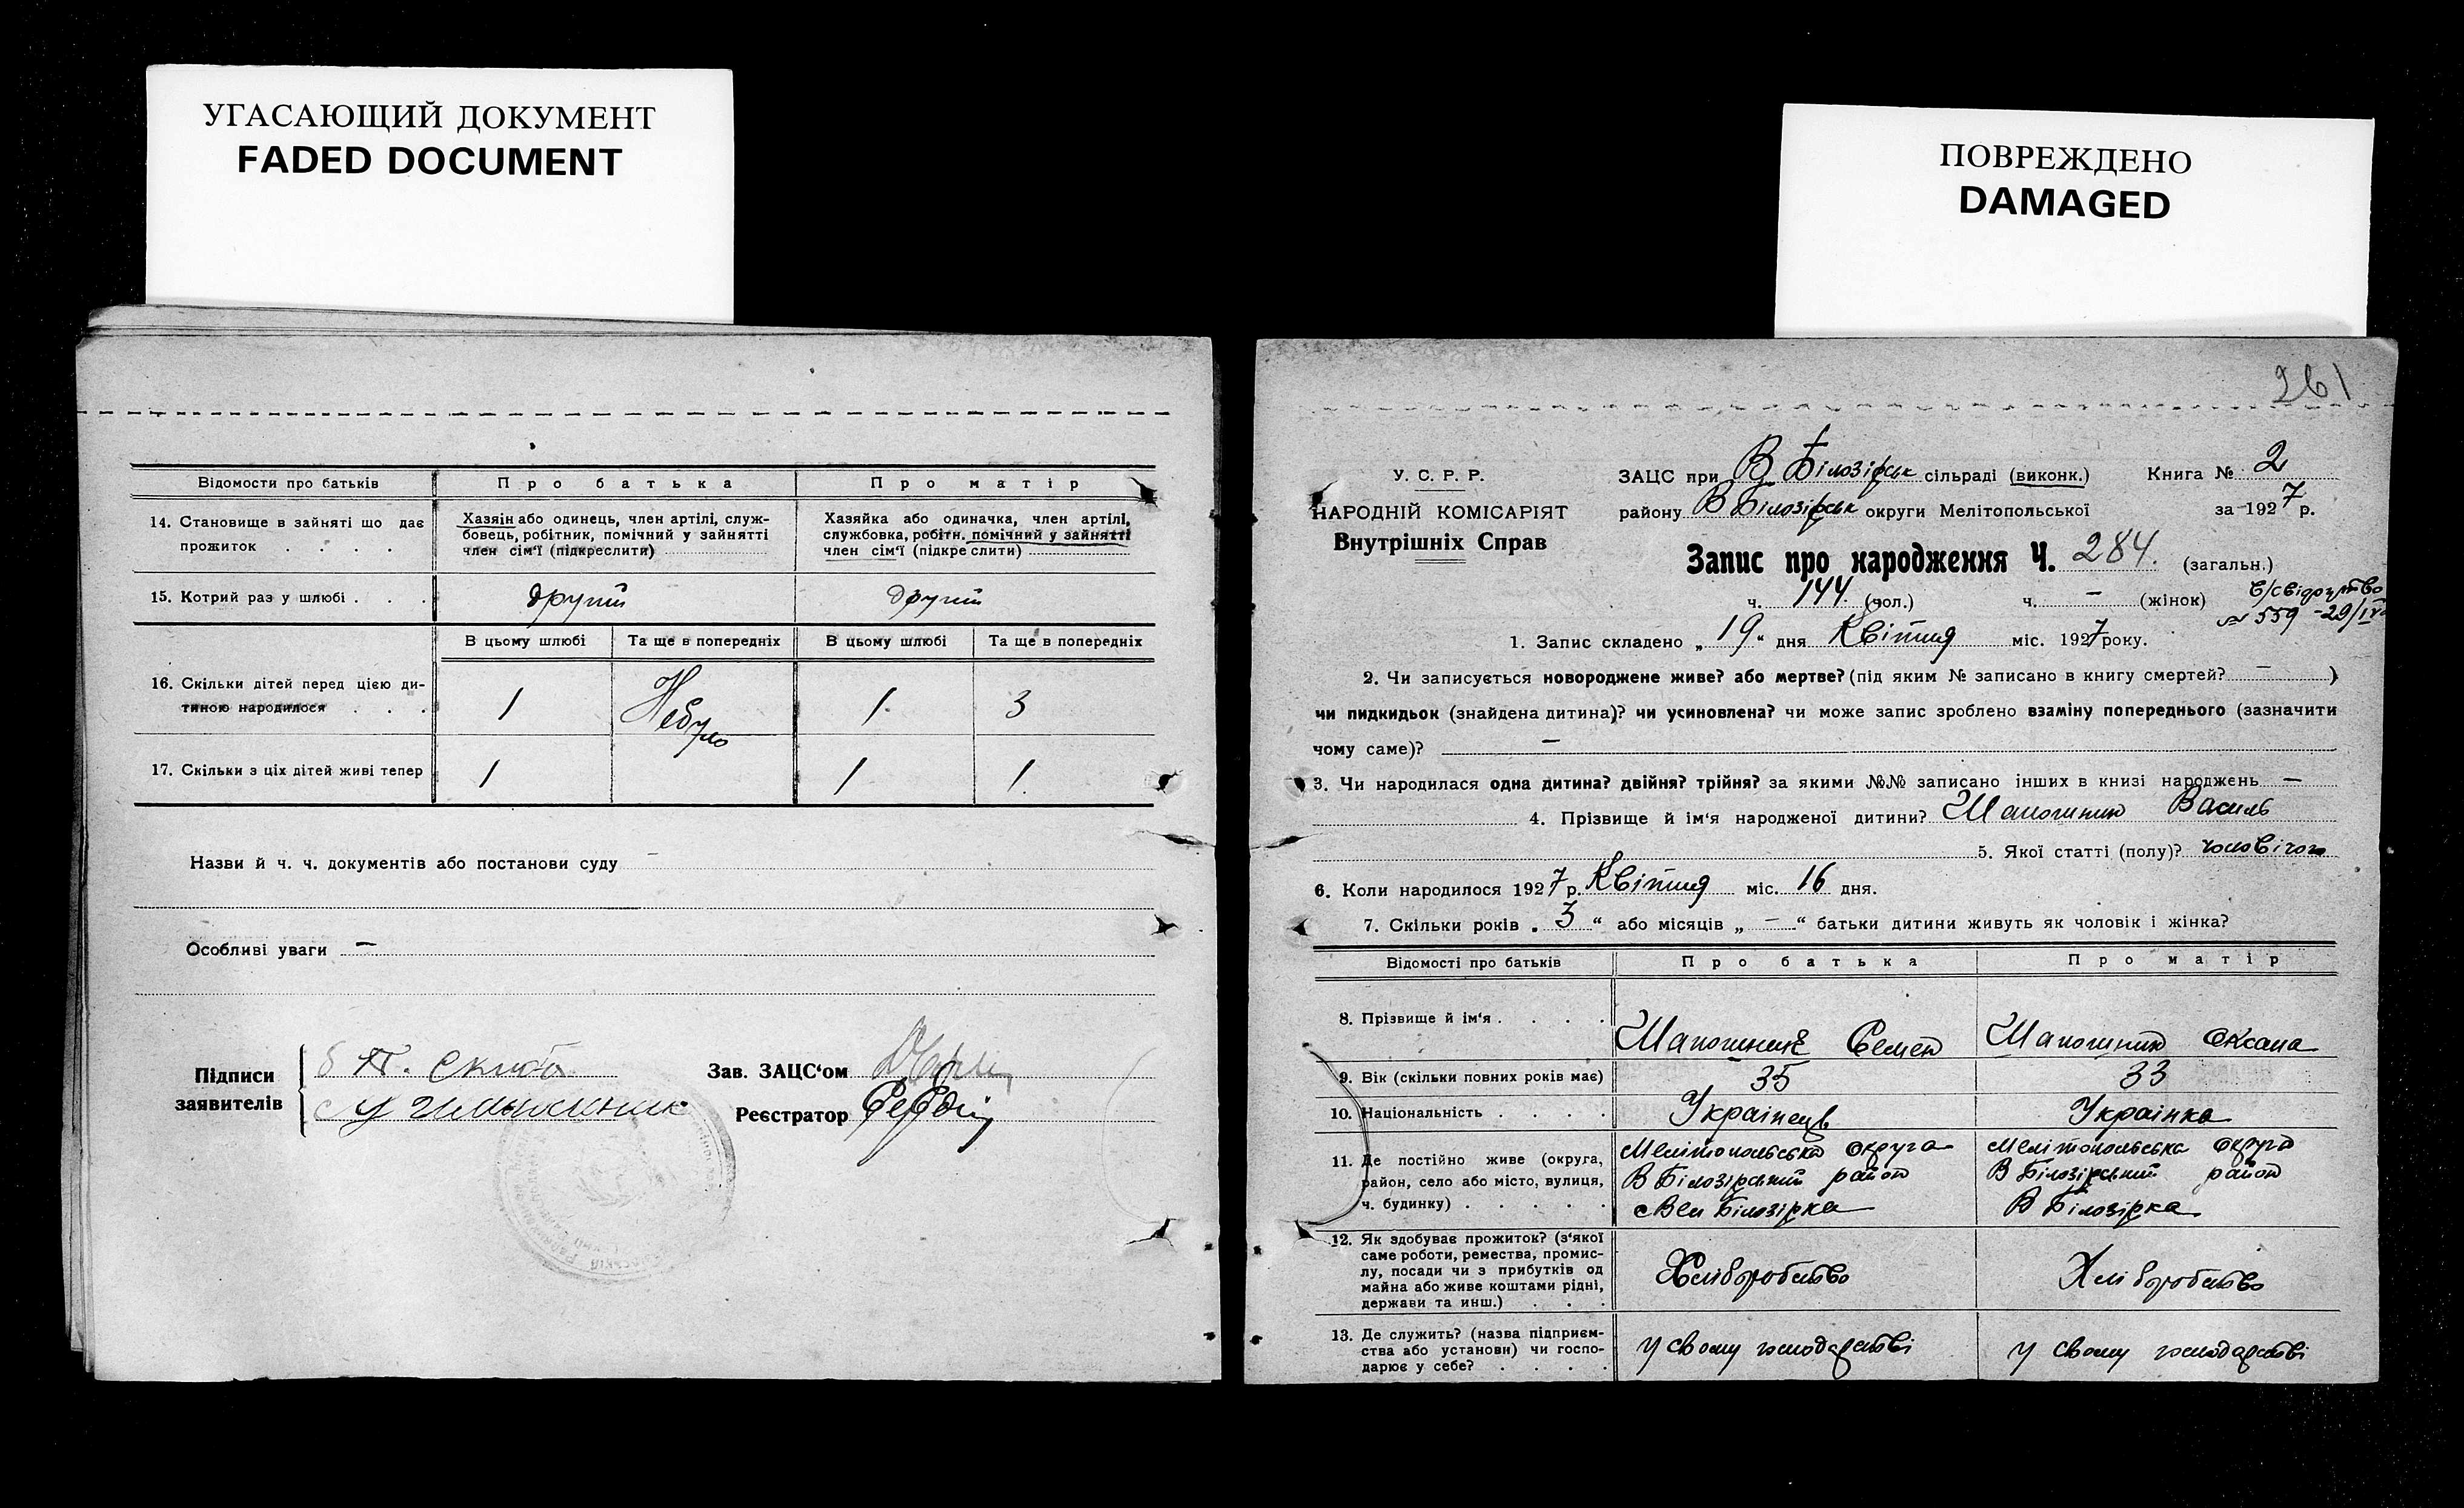 УГАСАЮЩИЙ ДОКУМЕНТ
FADED DOCUMENT
ПОВРЕЖДЕНО
DAMAGED
Відомости про батьків Про батька Про матір
14. Становище в зайняті що дає прожиток . . . .
Хазяін або одинець, член артілі, служ-
бовець, робітник, помічний у зайнятті
член сім'ї (підкреслити)
Хазяйка або одиначка, член артілі,
службовка, робітн. помічний у зайнятті
член сім'ї (підкреслити)
15. Котрий раз у шлюбі . . . другий другий
В цьому шлюбі Та ще в попередніх В цьому шлюбі Та ще в попередніх
16. Скільки дітей перед цією ди-
тиною народилося . . . 1 Небуло 1 3
17. Скільки з ціх дітей живі тепер 1 1 1
Назви й ч. ч. документів або постанови суду
Особливі уваги —
Підписи
заявителів
Зав. ЗАЦС'ом
Реєстратор
261
У. С. Р. Р.
НАРОДНІЙ КОМІСАРІЯТ
Внутрішніх Справ
ЗАЦС при В Білозірськ сільраді (виконк.) Книга № 2
району В Білозірськ округи Мелітопольської за 1927 р.
Запис про народження Ч. 284. (загальн.)
ч. 144 (чол.) ч. – (жінок)
№ 559 - 29/IV
1. Запис складено „19“ дня Квітня міс. 1927 року.
2. Чи записується новороджене живе? або мертве? (під яким № записано в книгу смертей? — )
чи пидкидьок (знайдена дитина)? чи усиновлена? чи може запис зроблено взаміну попереднього (зазначити
чому саме)? —
3. Чи народилася одна дитина? двійня? трійня? за якими №№ записано інших в книзі народжень —
4. Прізвище й ім'я народженої дитини? Шапошник Василь
5. Якої статті (полу)? чоловічого
6. Коли народилося 1927 р. Квітня міс. 16 дня.
7. Скільки років „3“ або місяців „—“ батьки дитини живуть як чоловік і жінка?
Відомості про батьків Про батька Про матір
8. Прізвище й ім'я . . . . Шапошник Семен Шапошник Оксана
9. Вік (скільки повних років має) 35 33
10. Національність . . . . Украінець Украінка
11. Де постійно живе (округа,
район, село або місто, вулиця,
ч. будинку) . . . . .
Мелітопольська округа
В Білозірський район
с Вел Білозірка
Мелітопольська округа
В Білозірський район
В Білозірка
12. Як здобуває прожиток? (з'якої
саме роботи, ремества, промис-
лу, посади чи з прибутків од
майна або живе коштами рідні,
держави та инш.) . . .
Хліборобство Хліборобство
13. Де служить? (назва підприєм-
ства або установи) чи госпо-
дарює у себе? . . . .
у свому господарстві у свому господарстві